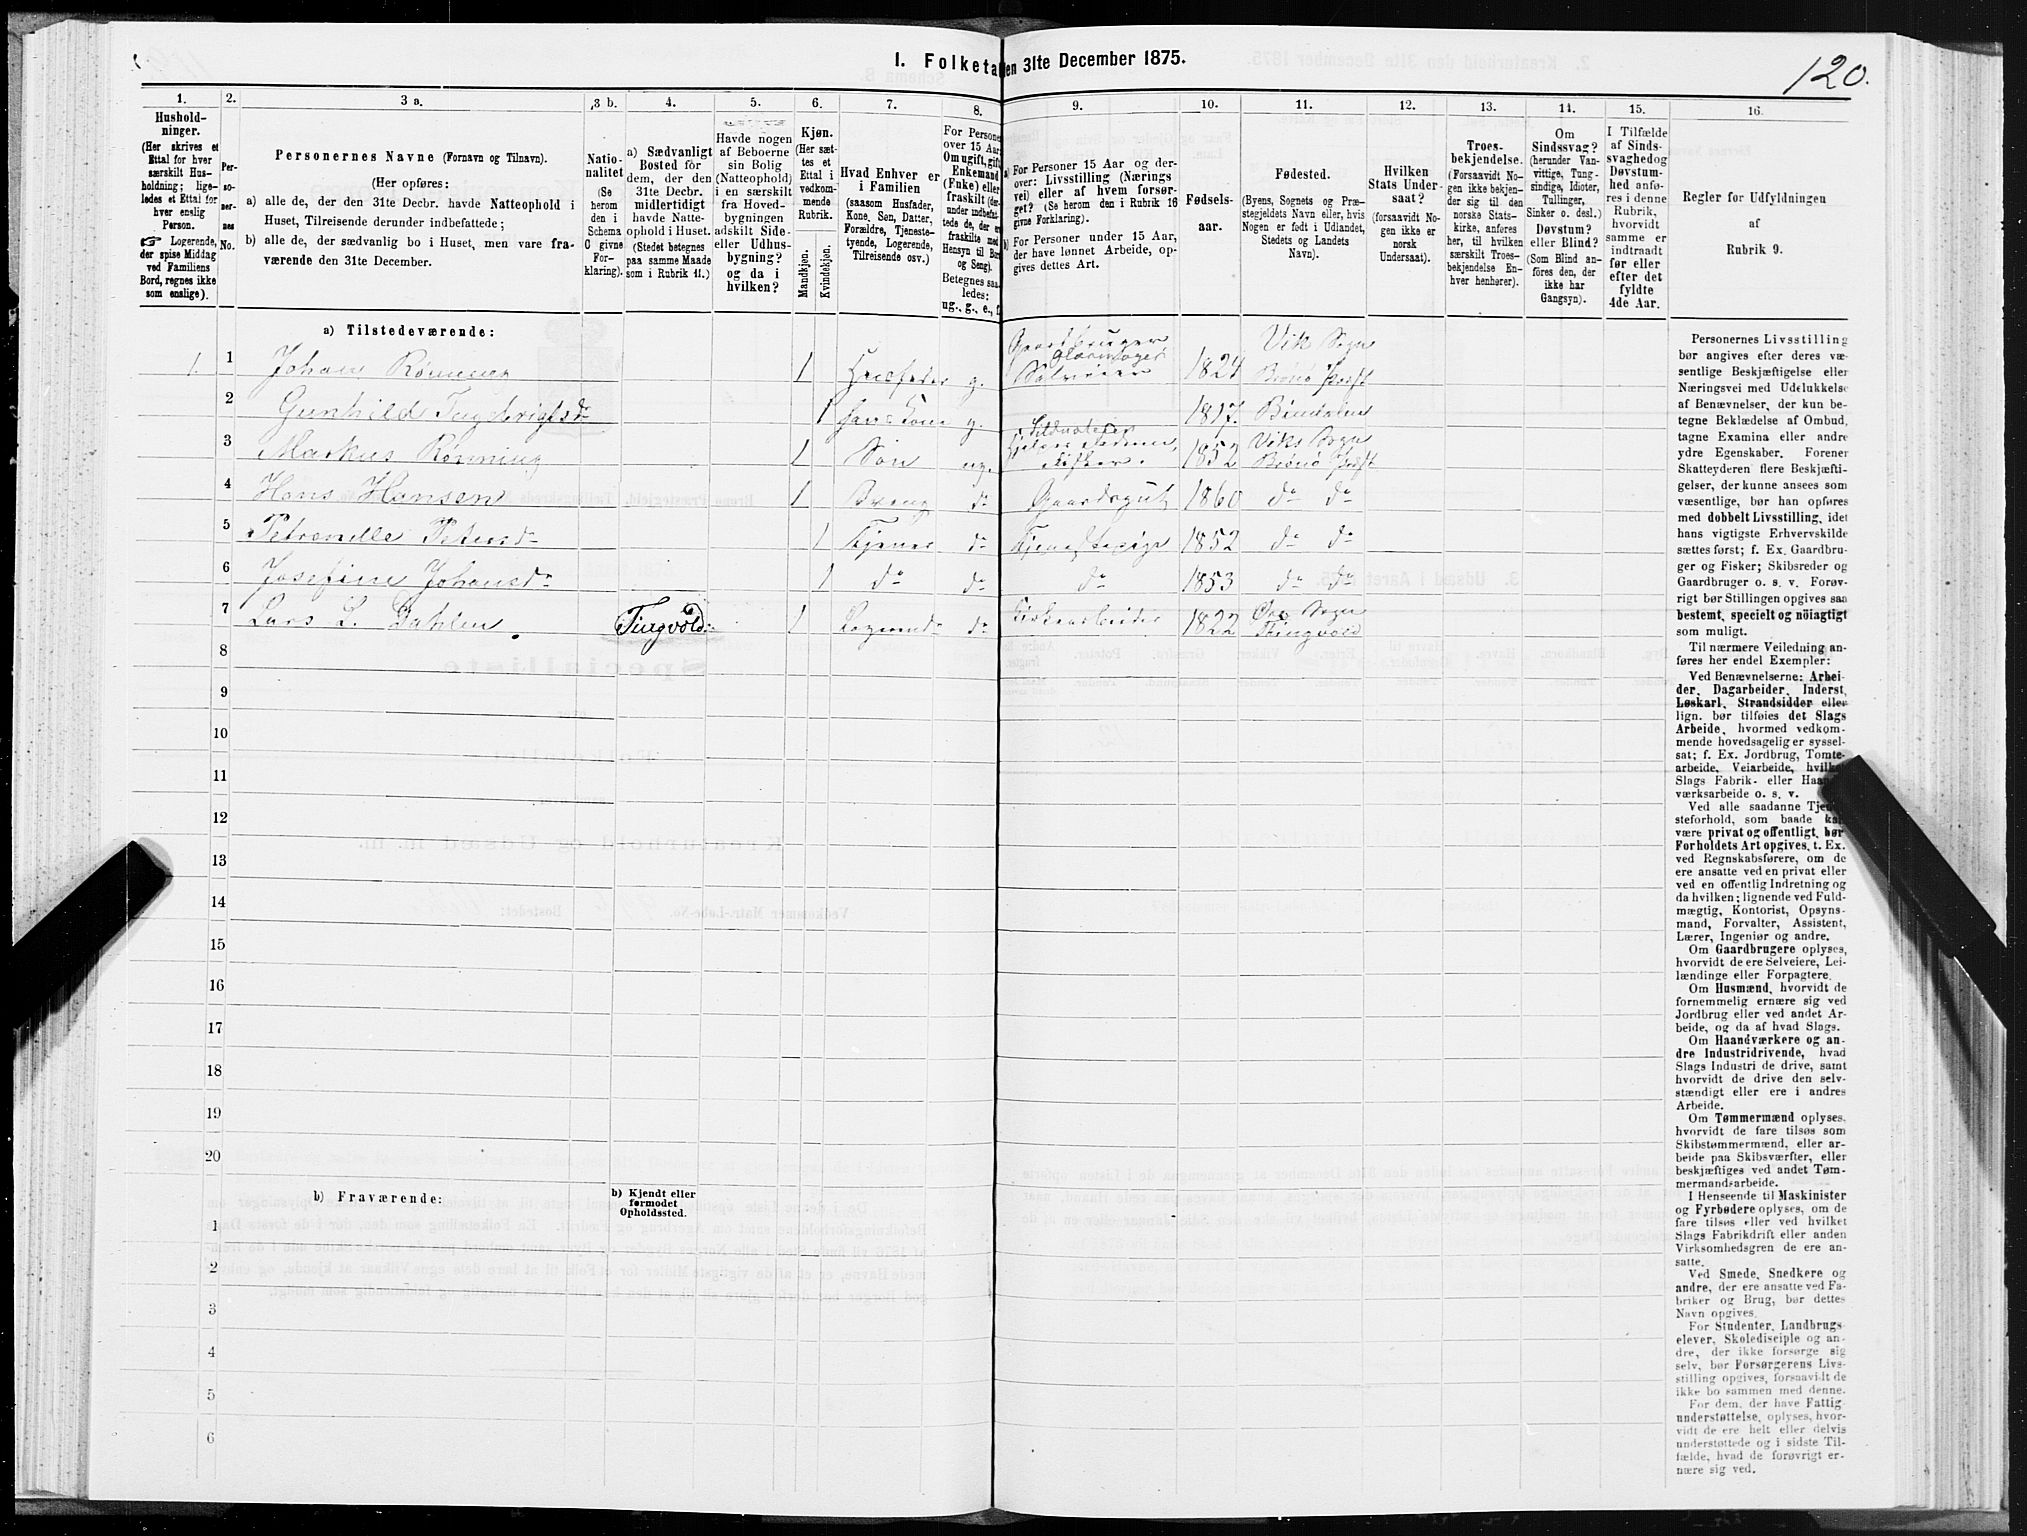 1. Folketal den 31te December 1875.
120.
1.
Hushold-
ninger.
(Her skrives et
Ettal for hver
særskilt Hus-
holdning; lige-
ledes et Ettal for
hver enslig
Person.
☞ Logerende,
der spise Middag
ved Familiens
Bord, regnes ikke
som enslige).
2.
Per-
so-
ner-
nes
No.
3 a.
Personernes Navne (Fornavn og Tilnavn).
(Her opføres:
a) alle de, der den 31te Decbr. havde Natteophold i
Huset, Tilreisende derunder indbefattede;
b) alle de, der sædvanlig bo i Huset, men vare fra-
værende den 31te December.
3 b.
Natio-
nalitet
(Se
herom
den i
Schema
C givne
For-
klaring).
4.
a) Sædvanligt
Bosted for
dem, der den
31te Decbr.
midlertidigt
havde Natte-
ophold i Huset.
(Stedet betegnes
paa samme Maade
som i Rubrik 11.)
5.
Havde nogen
af Beboerne
sin Bolig
(Natteophold)
i en særskilt
fra Hoved-
bygningen
adskilt Side-
eller Udhus-
bygning?
og da i
hvilken?
6.
Kjøn.
(Her sæt-
tes et
Ettal i
vedkom-
mende
Rubrik.
Mandkjøn.
Kvindekjøn.
7.
Hvad Enhver er
i Familien
(saasom Husfader,
Kone, Søn, Datter,
Forældre, Tjeneste-
tyende, Logerende,
Tilreisende osv.)
8.
For Personer
over 15 Aar:
Om ugift, gift,
Enkemand
(Enke) eller
fraskilt (der-
under indbefat-
tede de, der er
fraskilte med
Hensyn til Bord
og Seng).
Betegnes saa-
ledes:
ug., g., e., f.
9.
a) For Personer 15 Aar og der-
over: Livsstilling (Nærings-
vei) eller af hvem forsør-
get? (Se herom den i Rubrik 16
givne Forklaring).
b) For Personer under 15 Aar,
der have lønnet Arbeide, op-
gives dettes Art.
10.
Fødsels-
aar.
11.
Fødested.
(Byens, Sognets og Præ-
stegjeldets Navn eller, hvis
Nogen er født i Udlandet,
Stedets og Landets
Navn).
12.
Hvilken
Stats Under-
saat?
(forsaavidt No-
gen ikke er
norsk
Undersaat).
13.
Troes-
bekjendelse.
(Forsaavidt No-
gen ikke bekjen-
der sig til den
norske Stats-
kirke, anføres
her, til hvilken
særskilt Troes-
bekjendelse En-
hver henhører).
14.
Om
Sindssvag?
(herunder Van-
vittige, Tung-
sindige, Idioter,
Tullinger,
Sinker o. desl.)
Døvstum?
eller Blind?
(Som Blind an-
føres den, der
ikke har
Gangsyn).
15.
I Tilfælde
af Sinds-
svaghed og
Døvstum-
hed anfø-
res i denne
Rubrik,
hvorvidt
samme er
indtraadt
før eller
efter det
fyldte
4de Aar.
16.
Regler for Udfyldningen
af
Rubrik 9.
a) Tilstedeværende:
1. 1 Johan Rønning 1 Husfader g. Gaardbruger Selveier 1824 Vik Sogn Brønø Præst
2 Gunhild 1 hans Kone g. 1817. Bindalen
3 Markus Rønning 1 Søn ug. Fisker. 1852 Viks Sogn Brønø Præst
4 Hans Hansen 1 do Gaardsgut 1860 do do
5 Petronille Petersd. 1 Tjener do Tjenestepige 1852 do do
6 Josefine Johansd. 1 do do do 1853 do do
7 Lars L. Dahlen Tingvold 1 Logerende do 1822 Sogn Tingvold
8
9
10
11
12
13
14
15
16
17
18
19
20
b) Fraværende:
b) Kjendt eller
formodet
Opholdssted.
1
2
3
4
5
6
Personernes Livsstilling
bør angives efter deres væ-
sentlige Beskjæftigelse eller
Næringsvei med Udelukkelse
af Benævnelser, der kun be-
tegne Beklædelse af Ombud,
tagne Examina eller andre
ydre Egenskaber. Forener
Skatteyderen flere Beskjæfti-
gelser, der kunne ansees som
væsentlige, bør han opføres
med dobbelt Livsstilling, idet
hans vigtigste Erhvervskilde
sættes først; f. Ex. Gaardbru-
ger og Fisker; Skibsreder og
Gaardbruger o. s. v. Forøv-
rigt bør Stillingen opgives saa
bestemt, specielt og nöiagtigt
som muligt.
Til nærmere Veiledning an-
føres her endel Exempler:
Ved Benævnelserne: Arbei-
der, Dagarbeider, Inderst,
Løskarl, Strandsidder eller
lign. bør tilføies det Slags
Arbeide, hvormed vedkom-
mende hovedsagelig er syssel-
sat; f. Ex. Jordbrug, Tomte-
arbeide, Veiarbeide, hvilket
Slags Fabrik- eller Haand-
værksarbeide o. s. v.
Ved alle saadanne Tjene-
steforhold, som baade kan
være privat og offentligt, bør
Forholdets Art opgives, t. Ex.
ved Regnskabsførere, om de
ere ansatte ved en privat eller
ved en offentlig Indretning og
da hvilken; lignende ved Fuld-
mægtig, Kontorist, Opsyns-
mand, Forvalter, Assistent,
Lærer, Ingeniør og andre.
Om Gaardbrugere oplyses,
hvorvidt de ere Selveiere, Lei-
lændinge eller Forpagtere.
Om Husmænd, hvorvidt de
fornemmelig ernære sig ved
Jordbrug eller ved andet Ar-
beide, og da af hvad Slags.
Om Haandværkere og an-
dre Industridrivende, hvad
Slags Industri de drive, samt
hvorvidt de drive den selv-
stændigt eller ere i andres
Arbeide.
Om Tømmermænd oplyses,
hvorvidt de fare tilsøs som
Skibstømmermænd, eller ar-
beide paa Skibsværfter, eller
beskjæftiges ved andet Tøm-
mermandsarbeide.
I Henseende til Maskinister
og Fyrbødere oplyses, om de
fare tilsøs eller ved hvilket
Slags Fabrikdrift eller anden
Virksomhedsgren de ere an-
satte.
Ved Smede, Snedkere og
andre, der ere ansatte ved Fa-
briker og Brug, bør dettes
Navn opgives.
For Studenter, Landbrugs-
elever, Skoledisciple og an-
dre, der ikke forsørge sig
selv, bør Forsørgerens Livs-
stilling opgives, forsaavidt de
ikke bo sammen med denne.
For dem, der have Fattig-
understøttelse, oplyses, hvor-
vidt de ere helt eller delvis
understøttede og i sidste Til-
fælde, hvad de forøvrigt er-
nære sig ved.